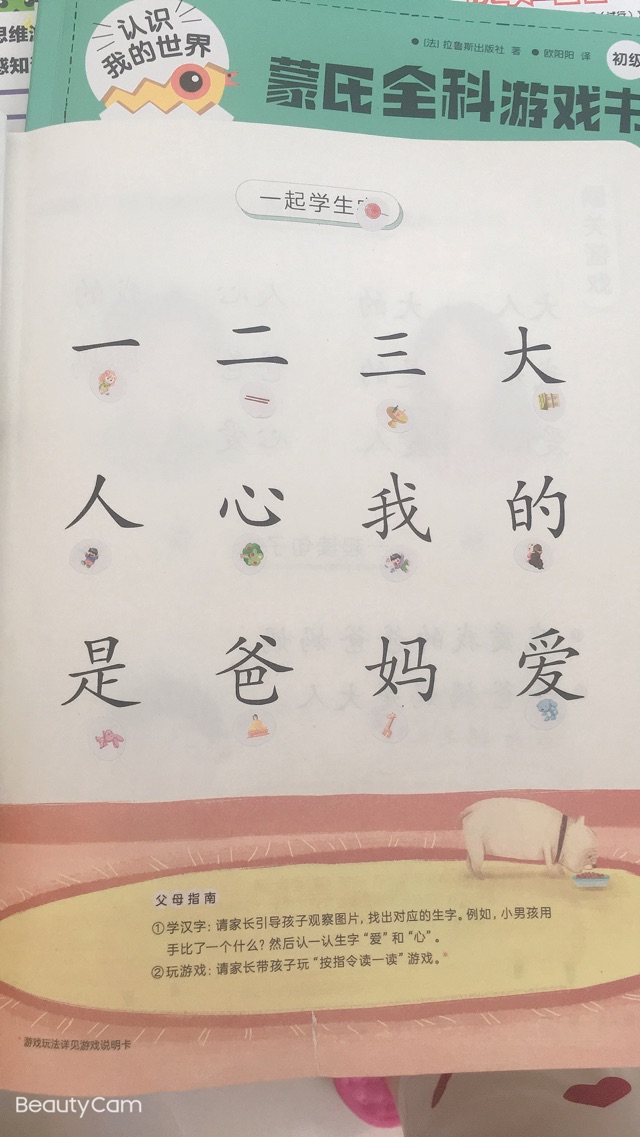 认识
我的世界
(法)拉鲁斯出版社 著 欧阳阳 译
初级
蒙氏全科游戏书
一起学生字
一 二 三 大
人 心 我 的
是 爸 妈 爱
父母指南
①学汉字：请家长引导孩子观察图片，找出对应的生字。例如，小男孩用
手比了一个什么？然后认一认生字“爱”和“心”。
②玩游戏：请家长带孩子玩“按指令读一读”游戏。*
*游戏玩法详见游戏说明卡
BeautyCam